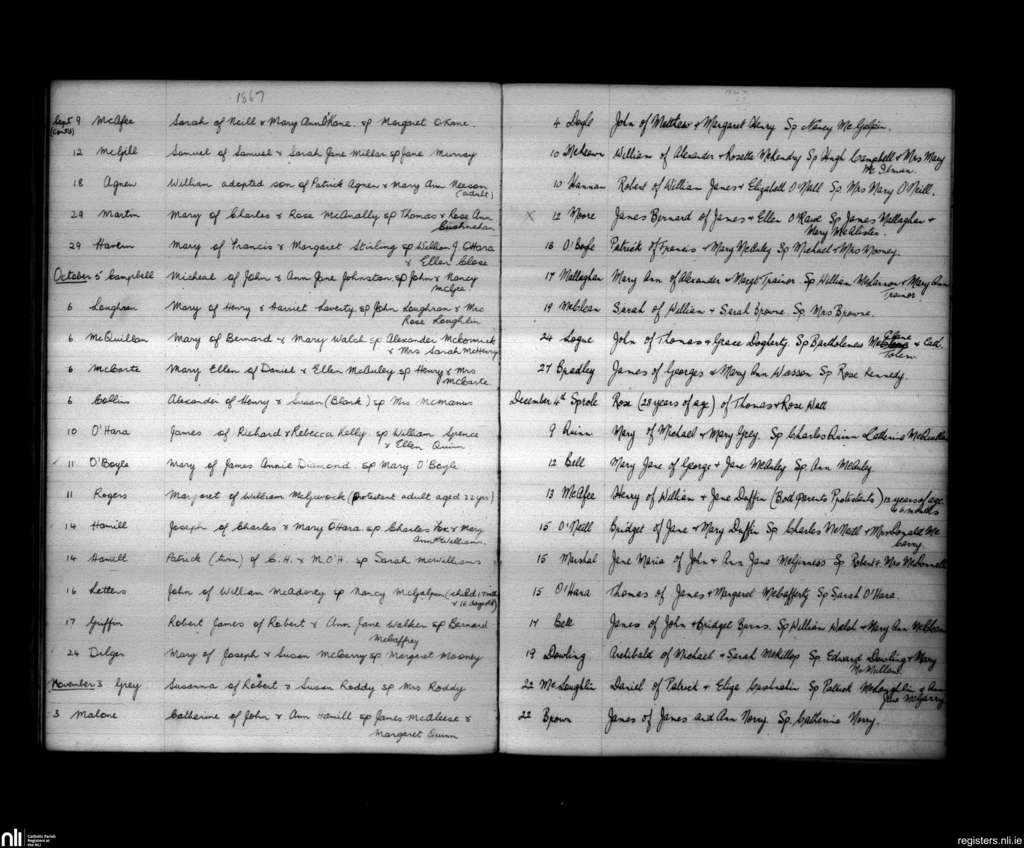 1867
Sept 9 McAfee Sarah of Neill & Mary Ann O'Kane. sp Margaret O'Kane.
(contd)
12 McGill Samuel of Samuel & Sarah Jane Millar sp Jane Murray
18 Agnew William adopted son of Patrick Agnew & Mary Ann Neeson
(adult)
29 Martin Mary of Charles & Rose McAnally sp Thomas & Rose Ann
Cushnahan
29 Havern Mary of Francis & Margaret Stirling sp William J. O'Hara
& Ellen Close
October 5 Campbell Micheal of John & Ann Jane Johnston sp John & Nancy
McGee
6 Loughran Mary of Henry & Harriet Laverty sp John Loughran & Mrs
Rose Loughlin
6 McQuillan Mary of Bernard & Mary Walsh sp Alexander McCormick
& Mrs Sarah McHenry
6 McCarte Mary Ellen of Daniel & Ellen McAuley sp Henry & Mrs
McCarte
6 Collins Alexander of Henry & Susan (Blank) sp Mrs McManus
10 O'Hara James of Richard & Rebecca Kelly sp William Spence
& Ellen Quinn
11 O'Boyle Mary of James Annie Diamond. sp Mary O'Boyle
11 Rogers Margaret of William McGivock (Protestant adult aged 22 yrs)
14 Hamill Joseph of Charles & Mary O'Hara sp Charles Fox & Mary
Ann McWilliams.
14 Hamill Patrick (twin) of C.H. & M.O'H. sp Sarah McWilliams
16 Letters John of William McAdorey sp Nancy McGalpin (child 1 mth
& 16 days old)
17 Griffin Robert James of Robert & Ann Jane Walker sp Bernard
McCaffrey
24 Dilger Mary of Joseph & Susan McGarry sp Margaret Mooney
November 3 Grey Susanna of Robert & Susan Roddy sp Mrs Roddy
3 Malone Catherine of John & Ann Hamill sp James McAleese &
Margaret Quinn
4 Doyle John of Matthew & Margaret Henry Sp Nancy McGalpin.
10 McKeown William of Alexander & Rosetta McKendry Sp Hugh Campbell & Mrs Mary
10 Hannan Robert of William James & Elizabeth O'Neill Sp. Mrs Mary O'Neill.
x 12 Moore James Bernard of James & Ellen O'Rawe Sp James Mellaghan &
Mary McAlister.
13 O'Boyle Patrick of Francis & Mary McAuley Sp Michael & Mrs Mooney.
17 Mallaghan Mary Ann of Alexander & Margt Trainor Sp William McLarnon & Mary Ann
Trainor
19 McClean Sarah of William & Sarah Browne. Sp Mrs Browne.
24 Logue John of Thomas & Grace Dogherty. Sp Bartholemew & Cath.
27 Bradley James of George & Mary Ann Wasson Sp Rose Kennedy.
December 4th Sprole Rose (28 years of age) of Thomas & Rose Watt
9 Quinn Mary of Michael & Mary Grey. Sp Charles Quinn Catherine McQuillan
12 Bell Mary Jane of George & Jane McAuley Sp. Ann McAuley
13 McAfee Henry of William & Jane Duffin (Both parents Protestants) 13 years of age
& 6 months
15 O'Neill Bridget of Jane & Mary Duffin Sp Charles McNeill & Mrs Donald Mc
Garry
15 Marshal Jane Maria of John & Ann Jane McGinness Sp Robert & Mrs McDonnell
15 O'Hara Thomas of James & Margaret McCafferty Sp Sarah O'Hara.
17 Bell James of John & Bridget Burns. Sp William Walsh & Mary Ann McClean
19 Dowling Archibald of Michael & Sarah McKillop Sp Edward Dowling & Mary
McMullan.
22 McLaughlin Daniel of Patrick & Eliza Cushnahan Sp Patrick McLaughlin & Ann
Jane McGarry
22 Brown James of James and Ann Norry. Sp. Catherine Norry.
nli Catholic Parish
Registers at
the NLI
registers.nli.ie